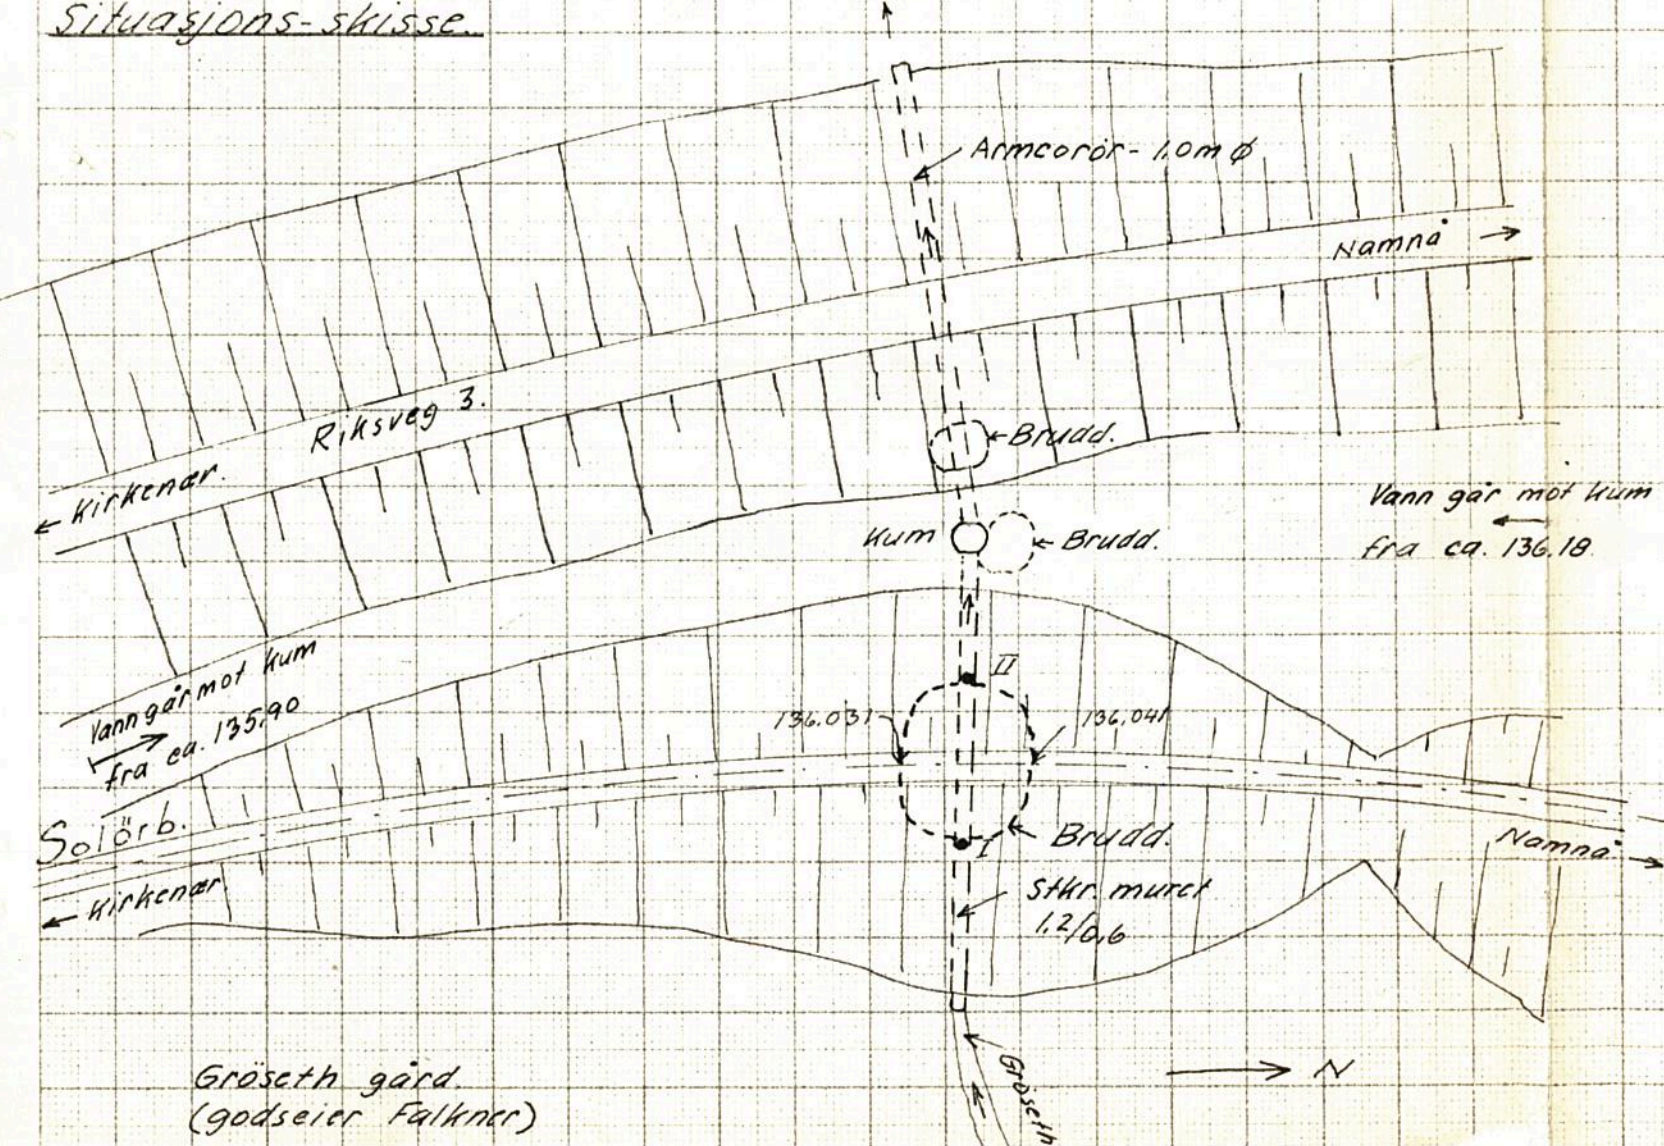 Situasjons-skisse.
Armcorör - 1,0m ø
Namnå
Riksveg 3.
Kirkenær.
Brudd.
Vann går mot kum
fra ca. 136.18
Kum
Brudd.
Vann går mot kum
fra ca. 135,90
II
136.031
136.041
Solörb.
Brudd.
I
Namnå
Kirkenær
Stkr. muret
1,2/0,6
Gröseth gård.
(godseier Falkner)
Gröseth
N